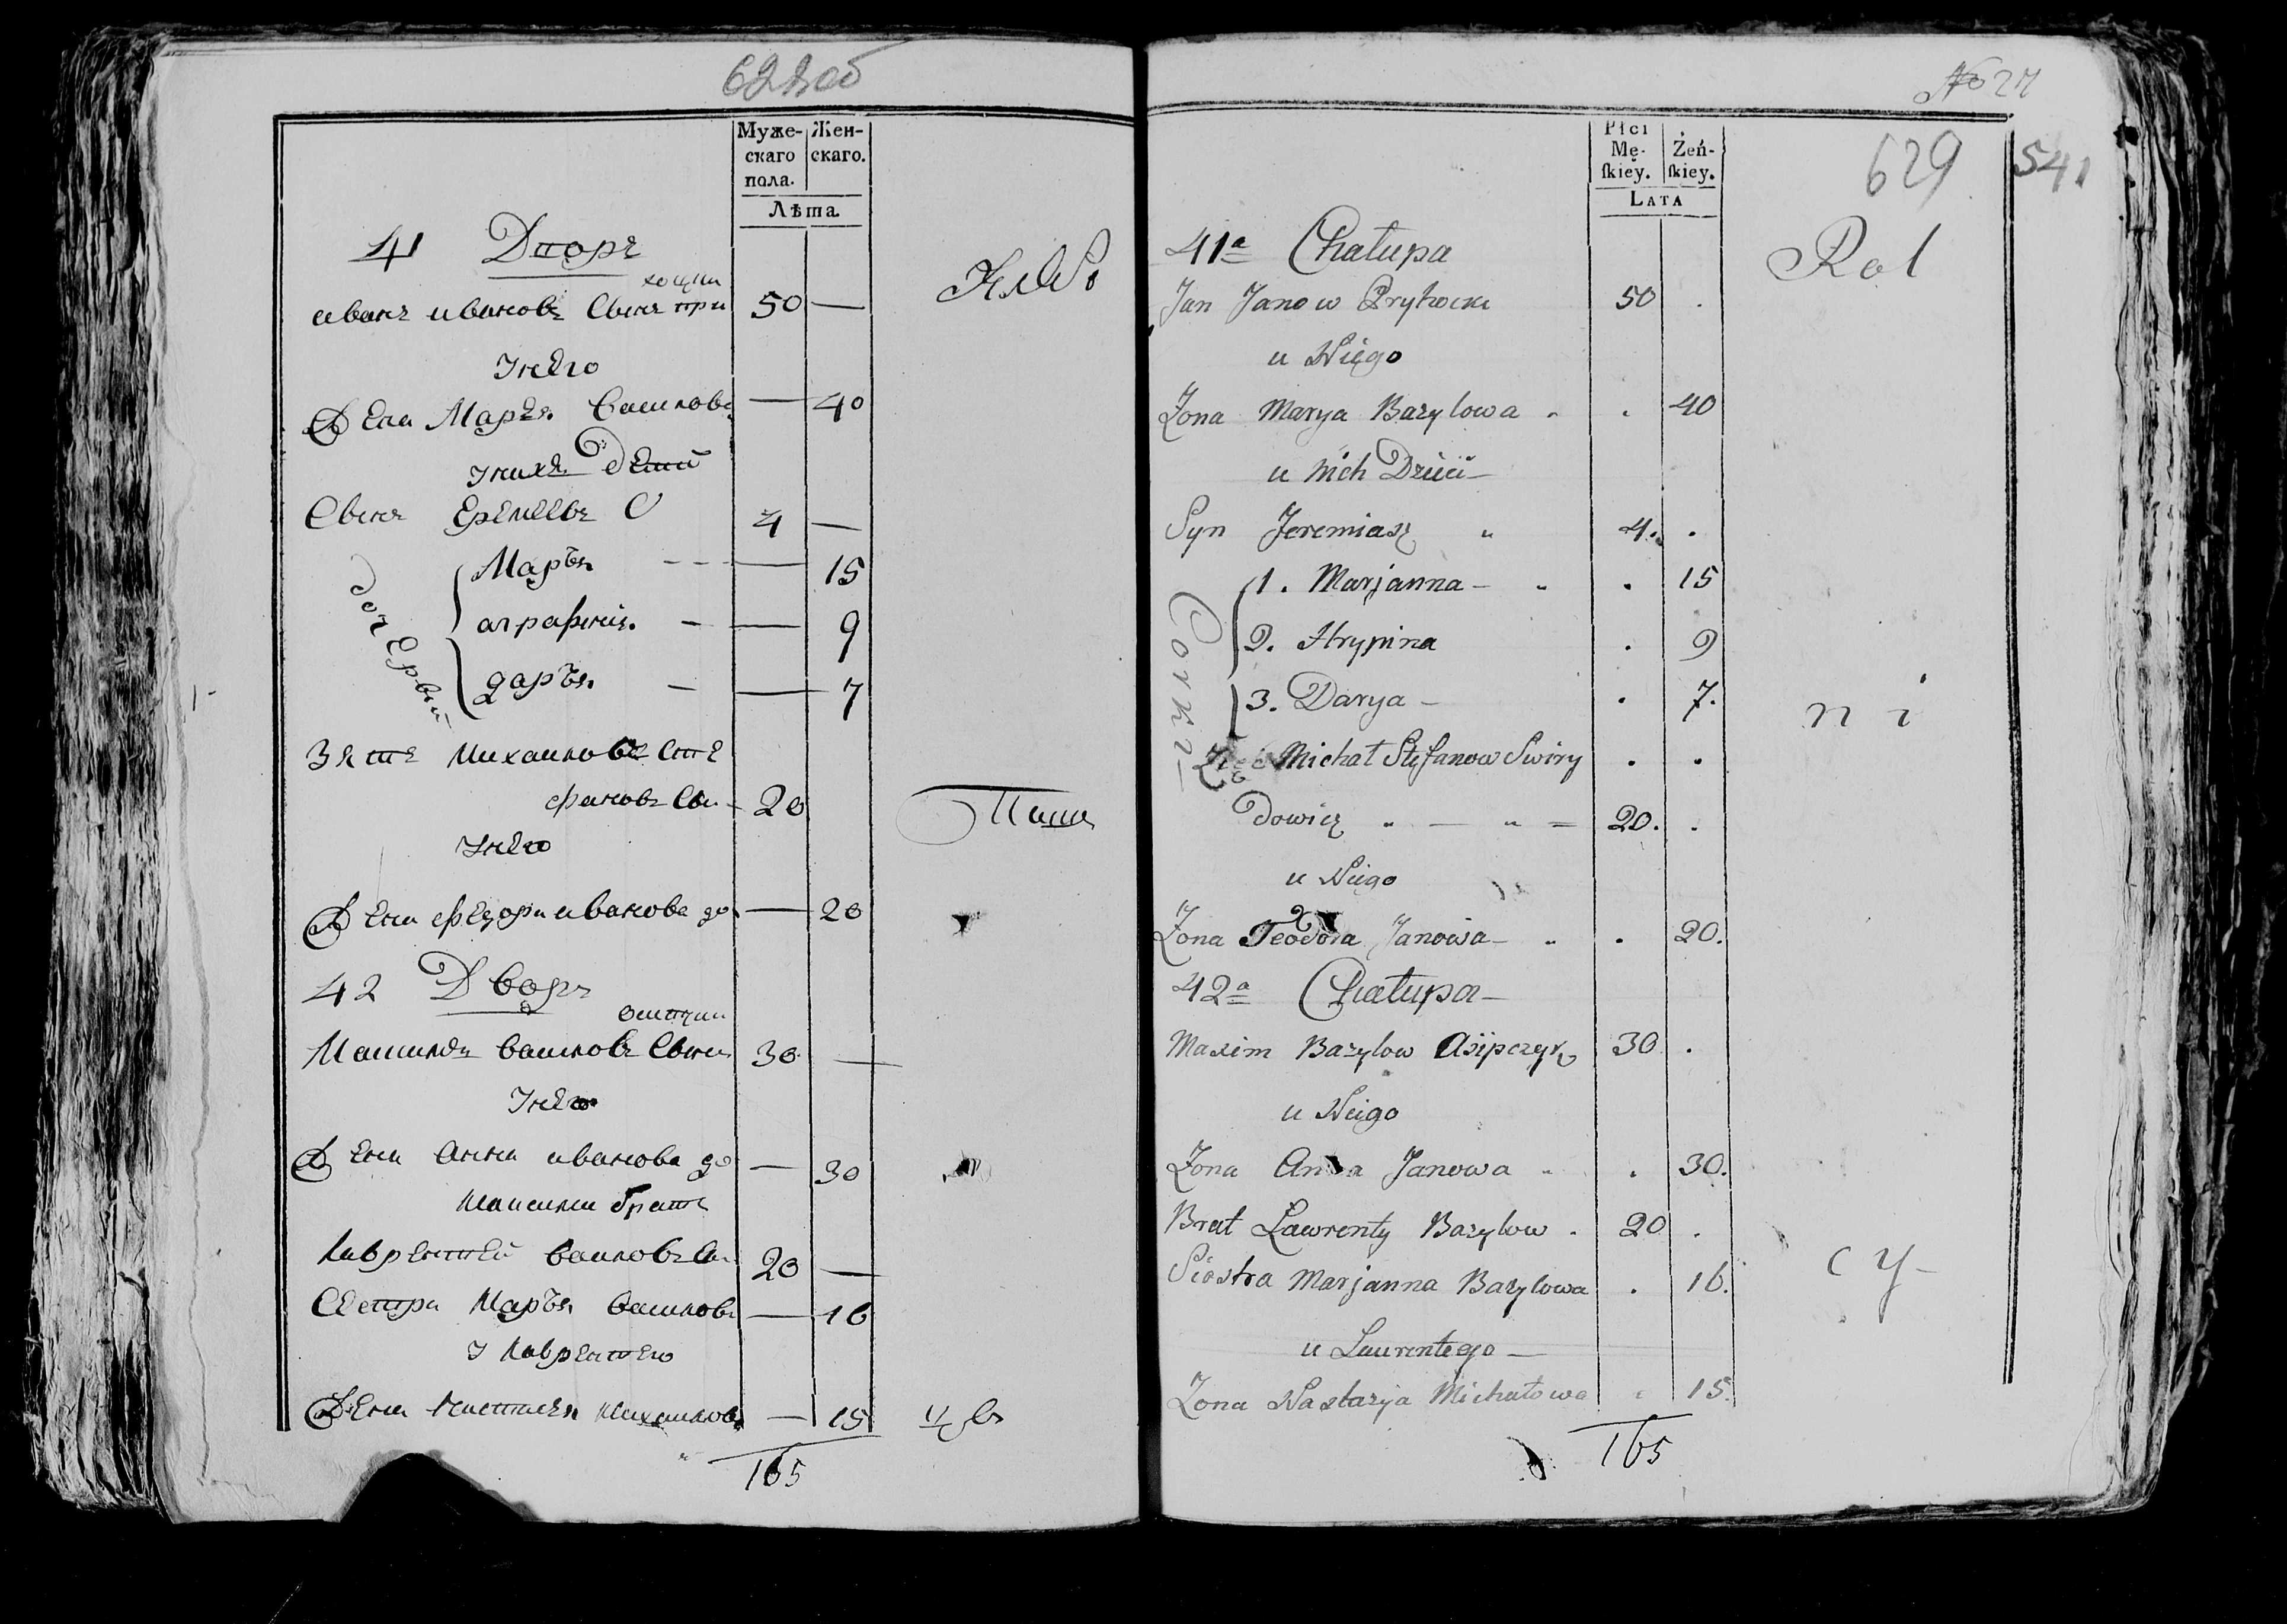 628 об
Муже-
скаго
пола.
Жен-
скаго.
Лѣта
41 Дворъ
иванъ ивановъ Сынъ при
50 —
унего
Жена Марья василова
— 40
унихъ дети
Сынъ Еремеевъ
4 —
дочерьи
Марья — 15
аграфенія — 9
дарья — 7
Зять михаиловъ Сте
фановъ Сы 20
унего
Жена федора иванова до — 20
42 Дворъ
Максимъ василовъ Сынъ 30 —
унего
Жена Анна иванова до — 30
максима братъ
Лаврентей василовъ Сы 20 —
Сестра Марья василова — 16
у Лаврентею
Жена настасья михаилова — 15
165
№ 27
629
541
Płci
Mę-
ſkiey.
Żeń-
ſkiey.
LATA
41a Chałupa
Rol
Jan Janow Pryhocki 50 .
u Niego
Żona Marya Bazylowa . . 40
u Nich Dzieci
Syn Jeremiasz " 4. .
Corki
1. Marjanna — . 15
2. Hrypina . 9
3. Darya — . 7.
ni
Zięć Michał Stefanow Swiry . .
dowicz 20. .
u Niego
Żona Teodora Janowa — . 20.
42a Chałupa
Maxim Bazylow Asipczyk 30 .
u Niego
Żona Anna Janowa . 30.
Brat Lawrenty Bazylow . 20 .
Siostra Marjanna Bazylowa . 16.
cy
u Laurentego —
Żona Nastazja Michałowa . 15.
165